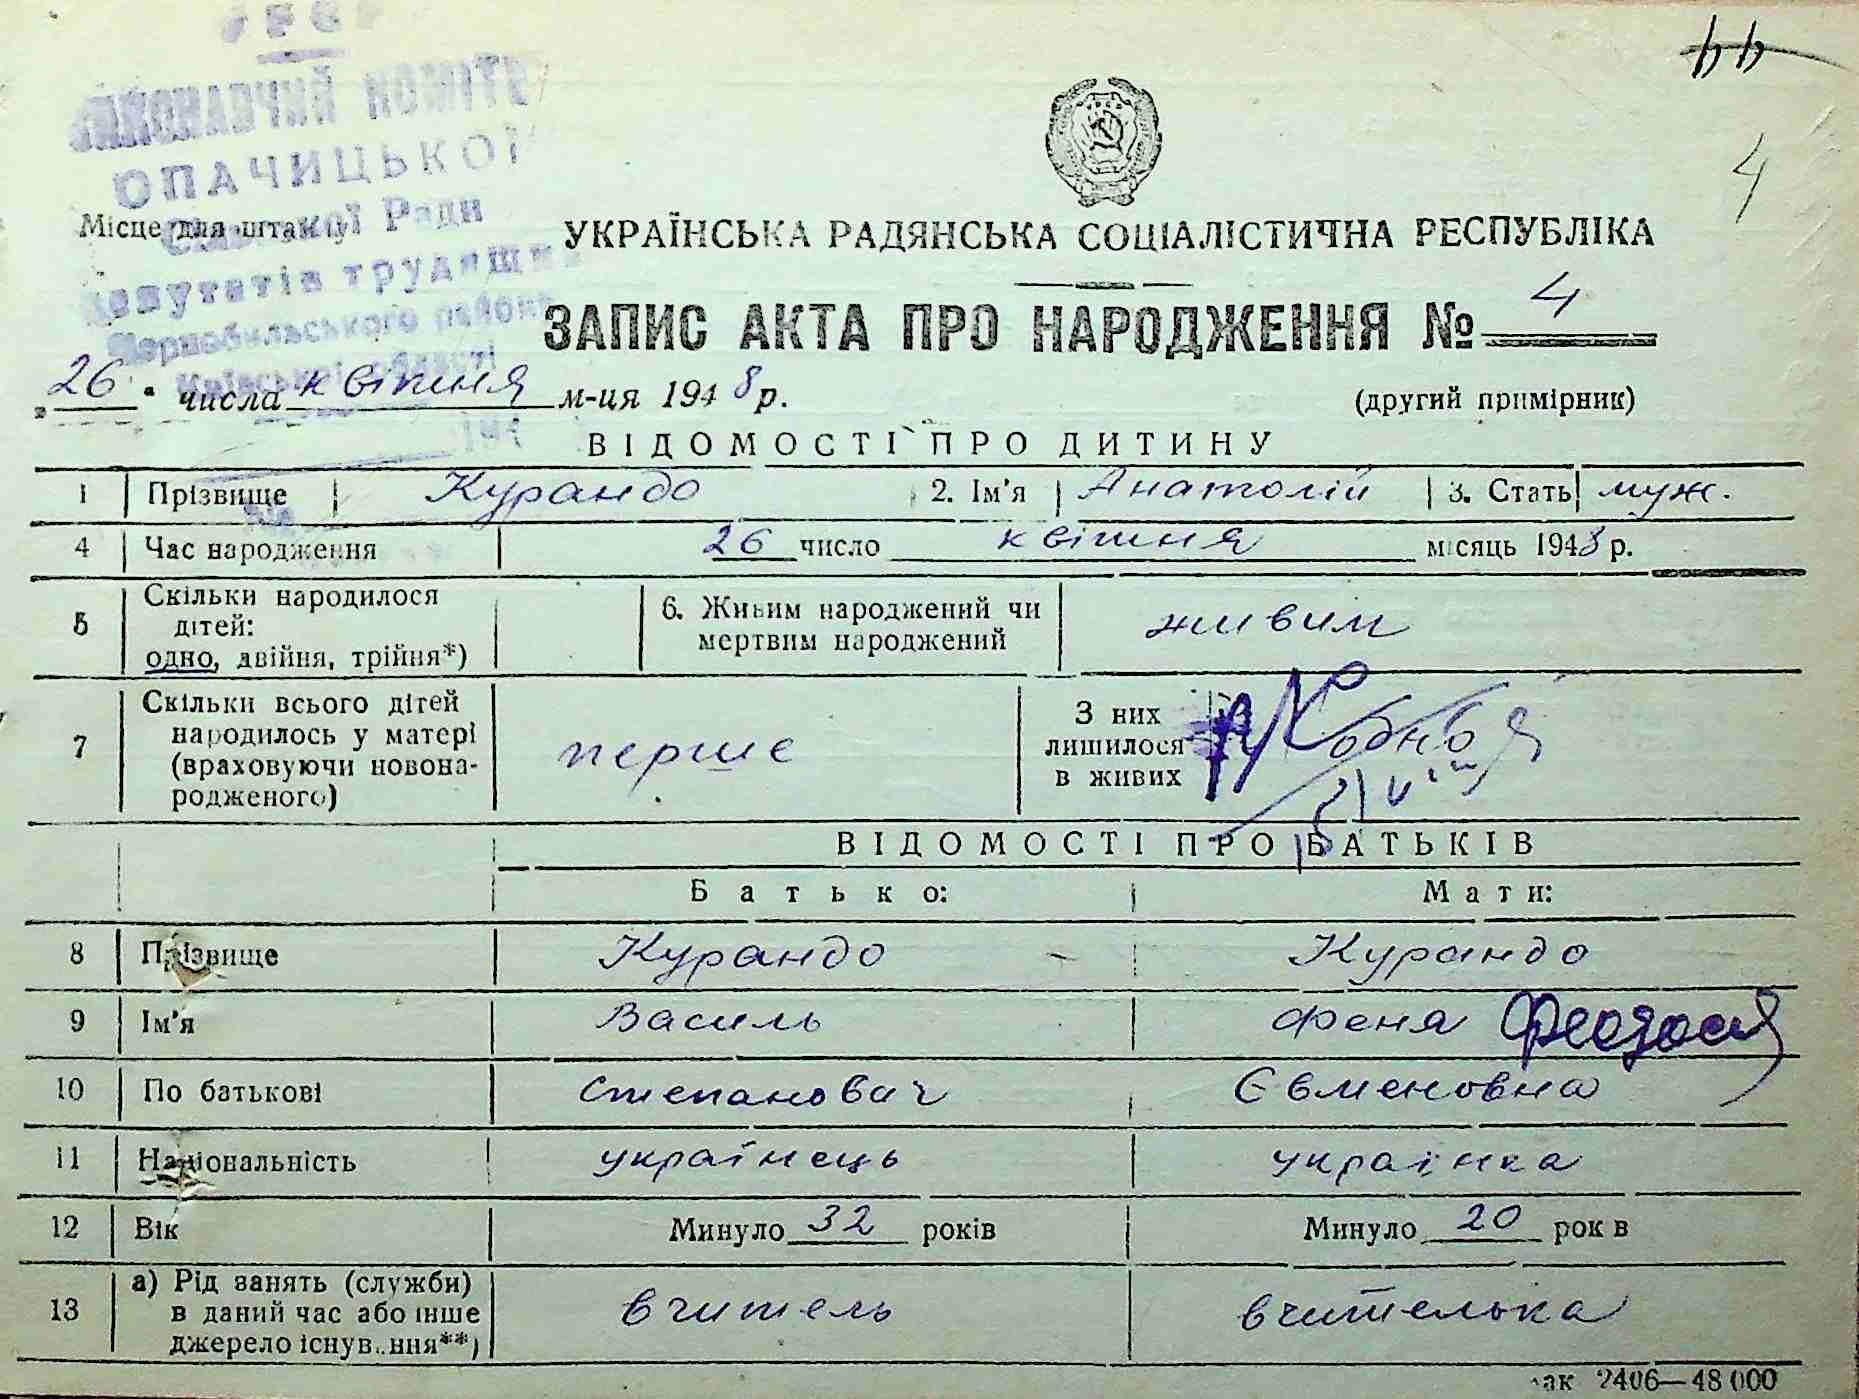 УРСР
ВИКОНАВЧИЙ КОМІТЕТ
ОПАЧИЦЬКОЇ
Сільської Ради
депутатів трудящих
Чорнобильського району
Київської області
194
№
44
4
Місце для штампу
УКРАЇНСЬКА РАДЯНСЬКА СОЦІАЛІСТИЧНА РЕСПУБЛІКА
ЗАПИС АКТА ПРО НАРОДЖЕННЯ № 4
„26" числа квітня м-ця 1948 р.
(другий примірник)
ВІДОМОСТІ ПРО ДИТИНУ
1 Прізвище Курандо 2. Ім'я Анатолій 3. Стать муж.
4 Час народження 26 число квітня місяць 1948 р.
5 Скільки народилося дітей: одно, двійня, трійня*)
6. Живим народжений чи мертвим народжений живим
7 Скільки всього дітей народилось у матері (враховуючи новонародженого) перше
З них лишилося в живих одно
ВІДОМОСТІ ПРО БАТЬКІВ
Батько: Мати:
8 Прізвище Курандо Курандо
9 Ім'я Василь Феня Феодосія
10 По батькові Степанович Євменовна
11 Національність українець українка
12 Вік Минуло 32 років Минуло 20 років
13 а) Рід занять (служби) в даний час або інше джерело існування**) вчитель вчителька
Зак 2406—48 000